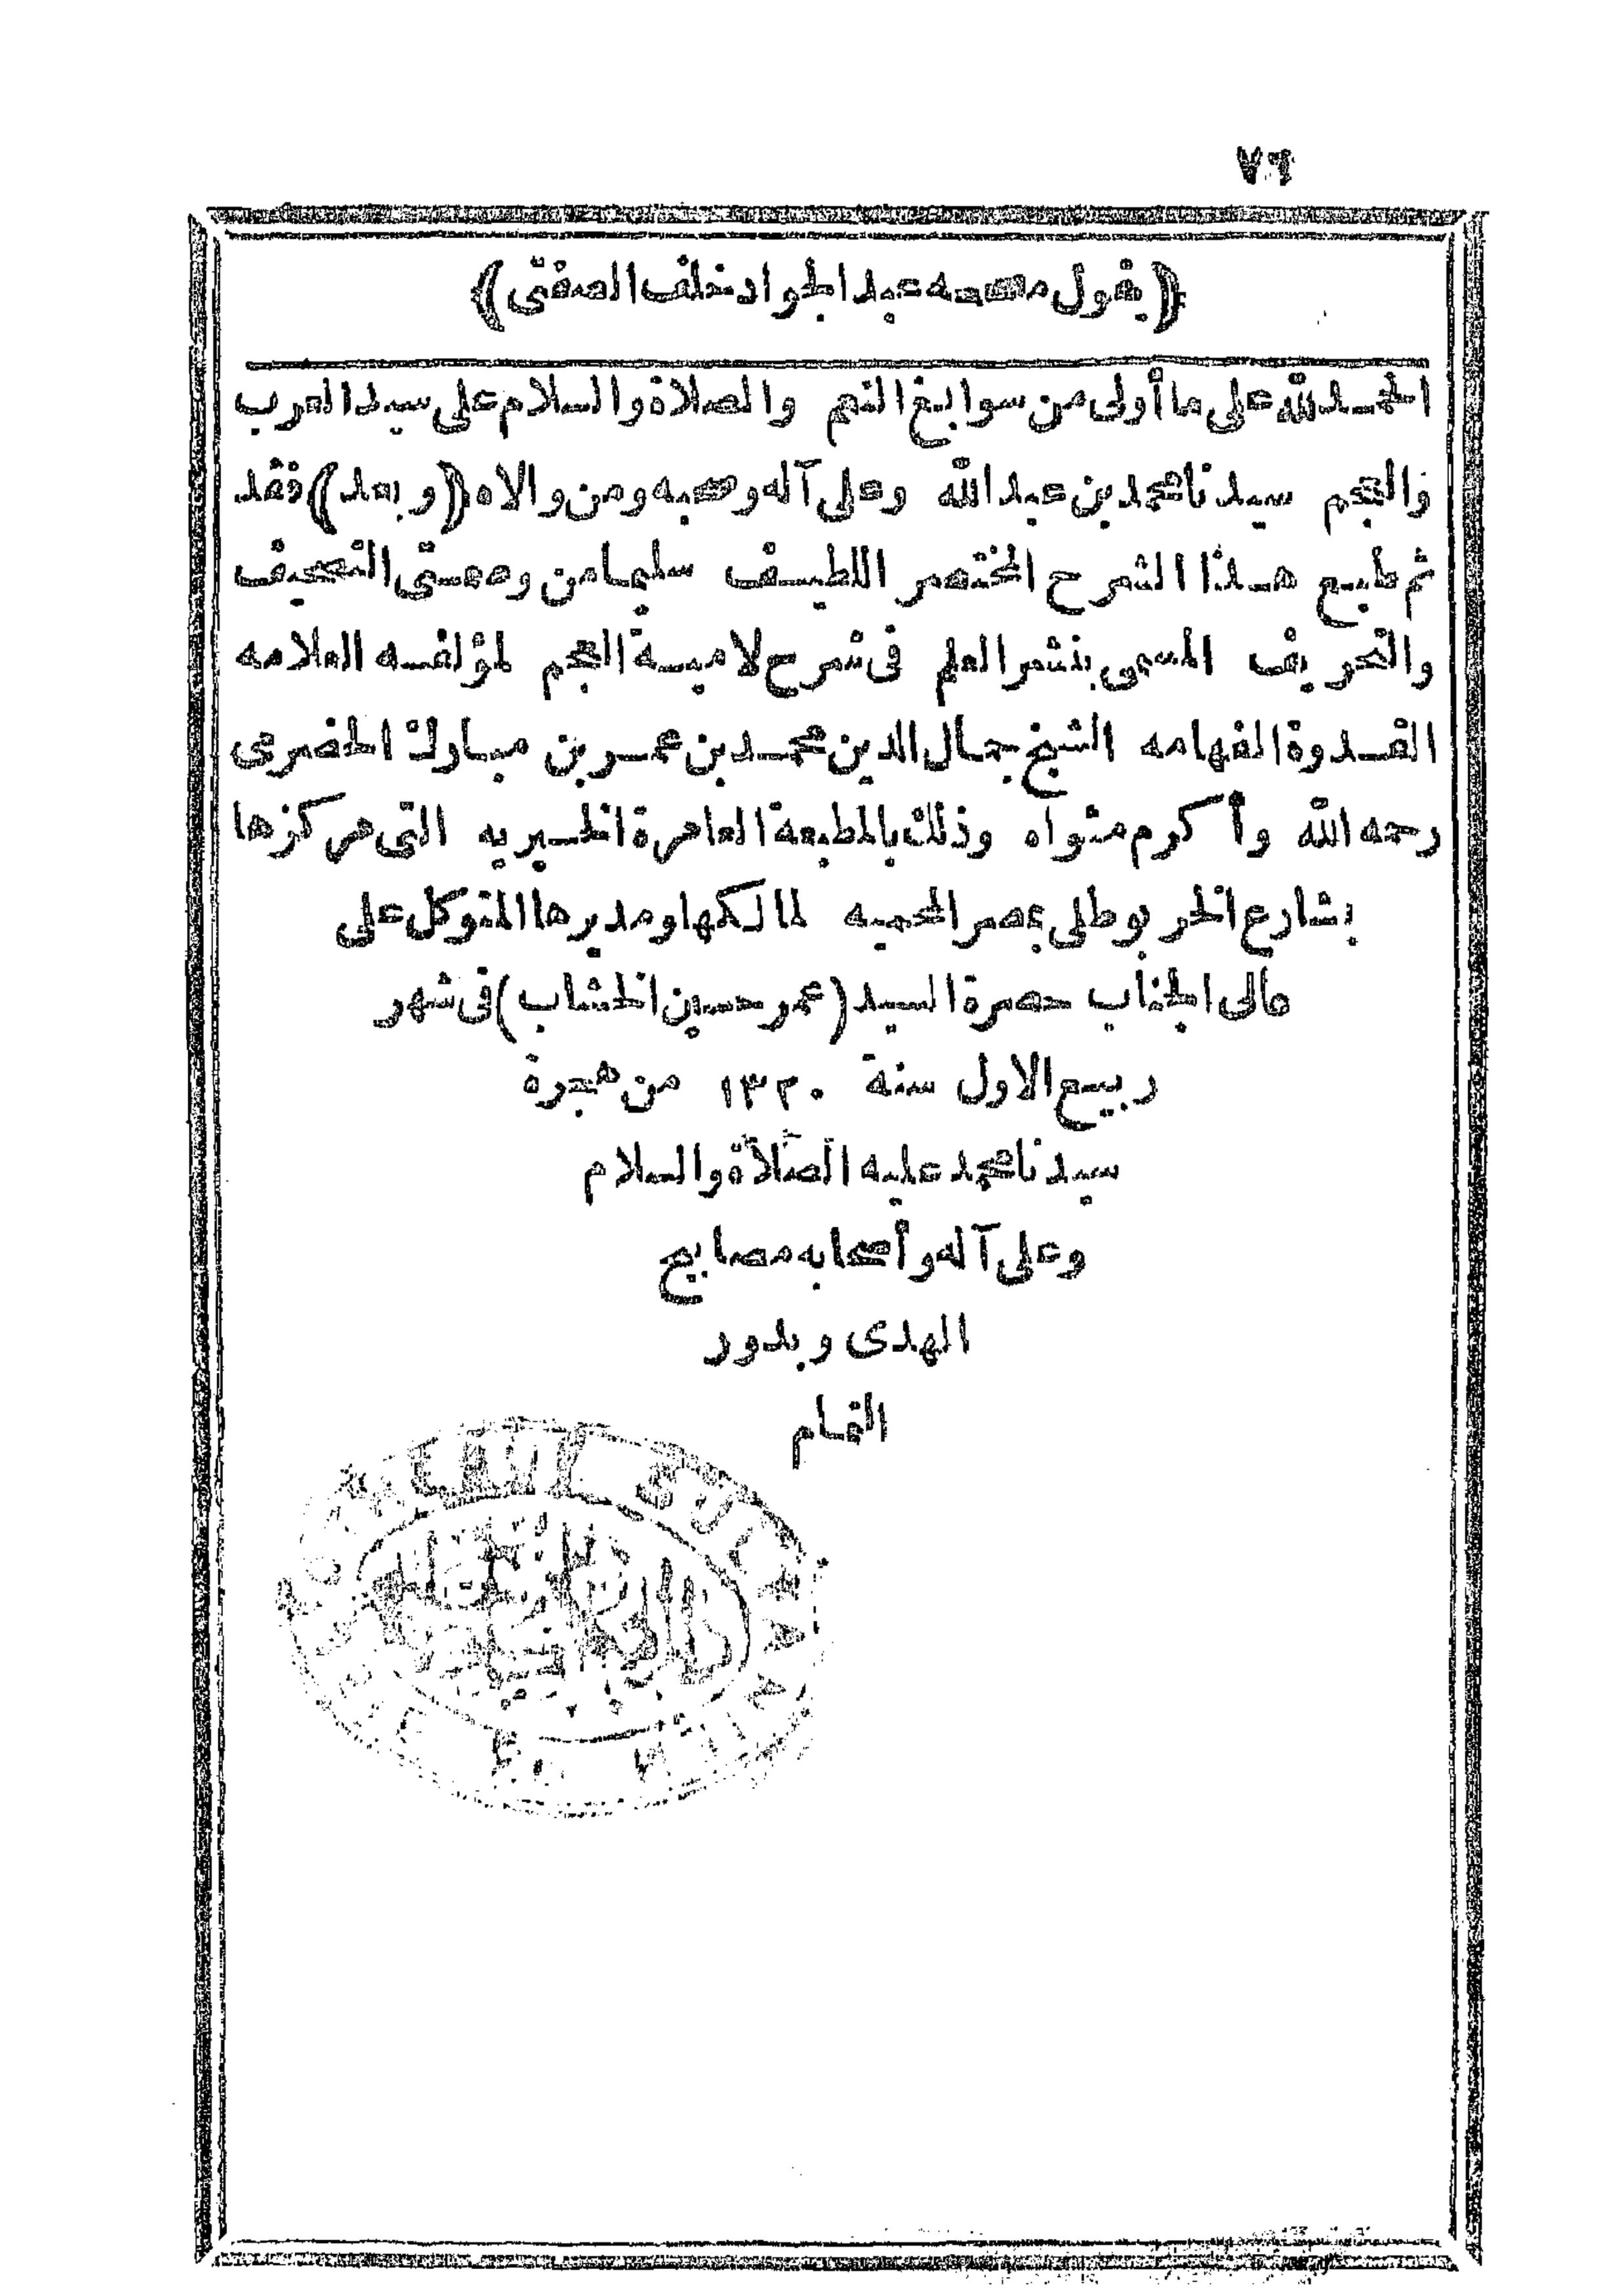 ٧٦
﴿يقول مصححه عبد الجواد خلف الصفتى﴾
الحمد لله على ما أولى من سوابغ النعم والصلاة والسلام على سيد العرب
والعجم سيدنا محمد بن عبد الله وعلى آله وصحبه ومن والاه ﴿وبعد﴾ فقد
تم طبع هذا الشرح المختصر اللطيف سليما من وصمتى التصحيف
والتحريف المسمى بنشر العلم فى شرح لامية العجم لمؤلفه العلامه
القدوة الفهامه الشيخ جمال الدين محمد بن عمر بن مبارك الحضرمى
رحمه الله وأكرم مثواه وذلك بالمطبعة العامرة الخيريه التى مركزها
بشارع الخربوطلى بمصر المحميه لمالكها ومديرها المتوكل على
عالى الجناب حضرة السيد (عمر حسين الخشاب) فى شهر
ربيع الاول سنة ١٣٢٠ من هجرة
سيدنا محمد عليه الصلاة والسلام
وعلى آله وأصحابه مصابيح
الهدى وبدور
التمام